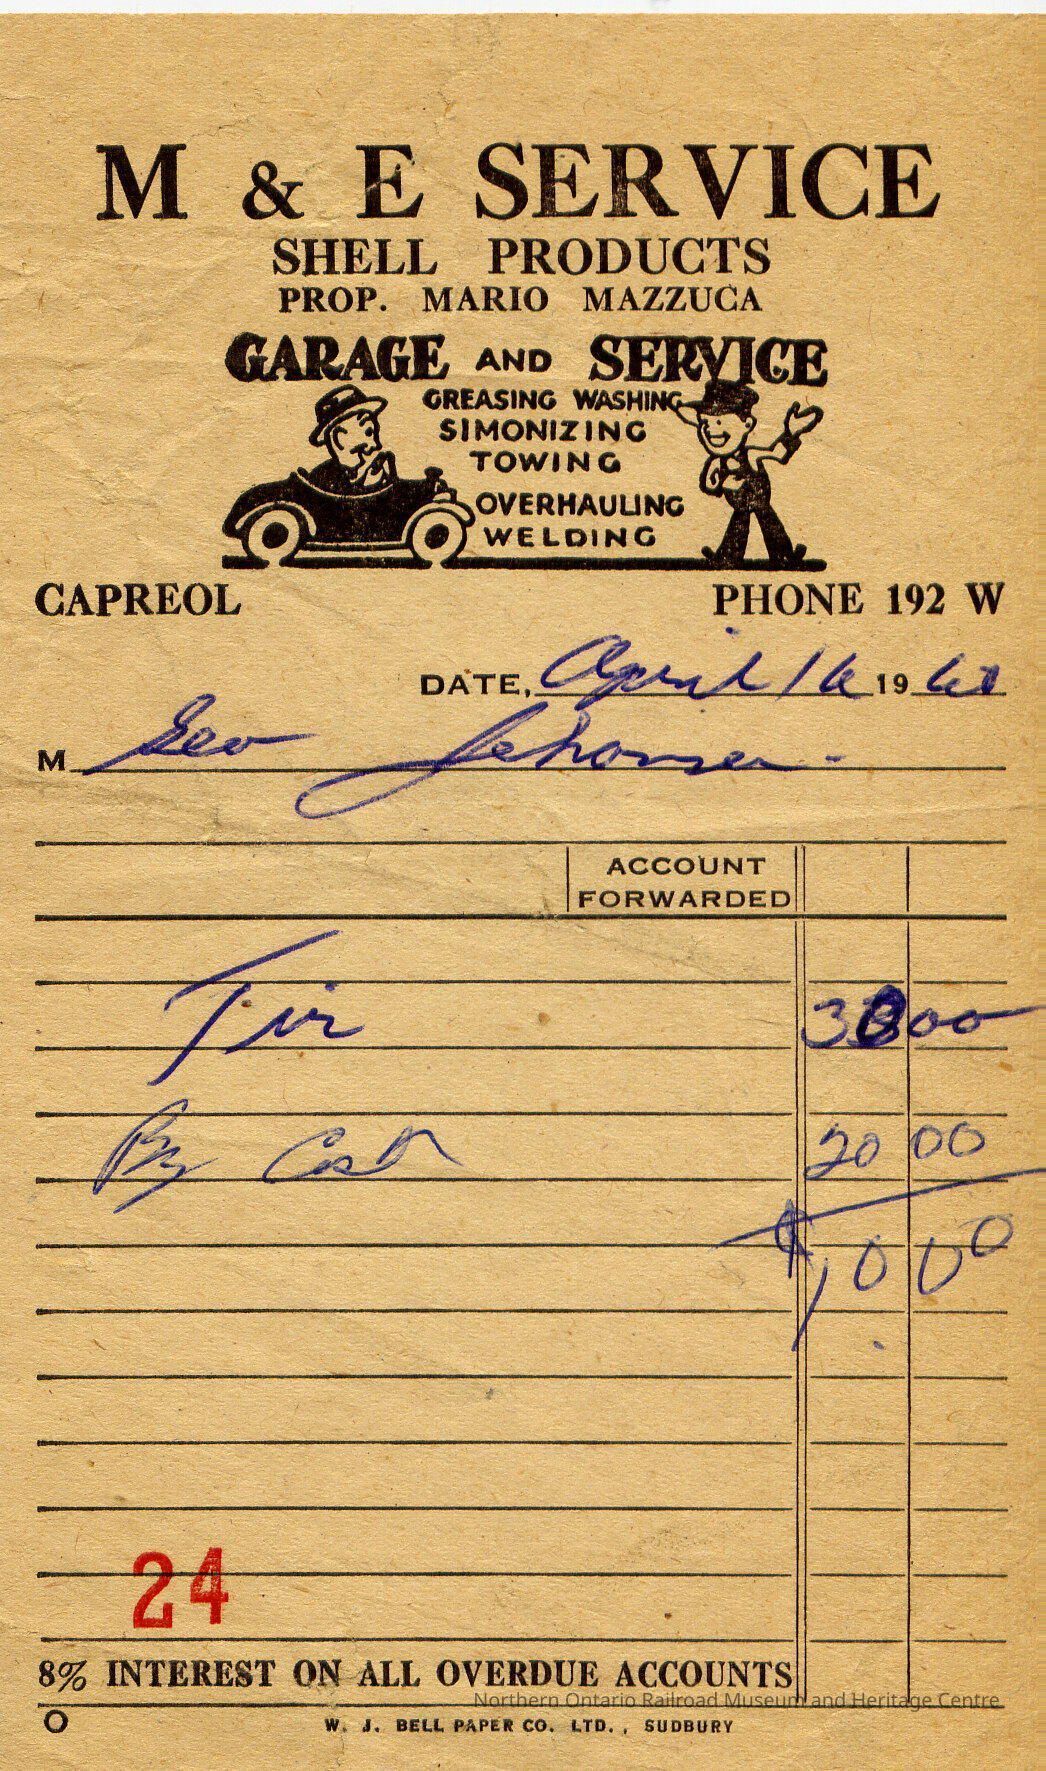 M & E SERVICE
SHELL PRODUCTS
PROP. MARIO MAZZUCA
GARAGE AND SERVICE
GREASING WASHING
SIMONIZING
TOWING
OVERHAULING
WELDING
CAPREOL PHONE 192 W
DATE, April 16 19
M Geo
ACCOUNT
FORWARDED
Tir 30 00
By Cash 20 00
$10 00
24
8% INTEREST ON ALL OVERDUE ACCOUNTS
Northern Ontario Railroad Museum and Heritage Centre
W. J. BELL PAPER CO. LTD., SUDBURY